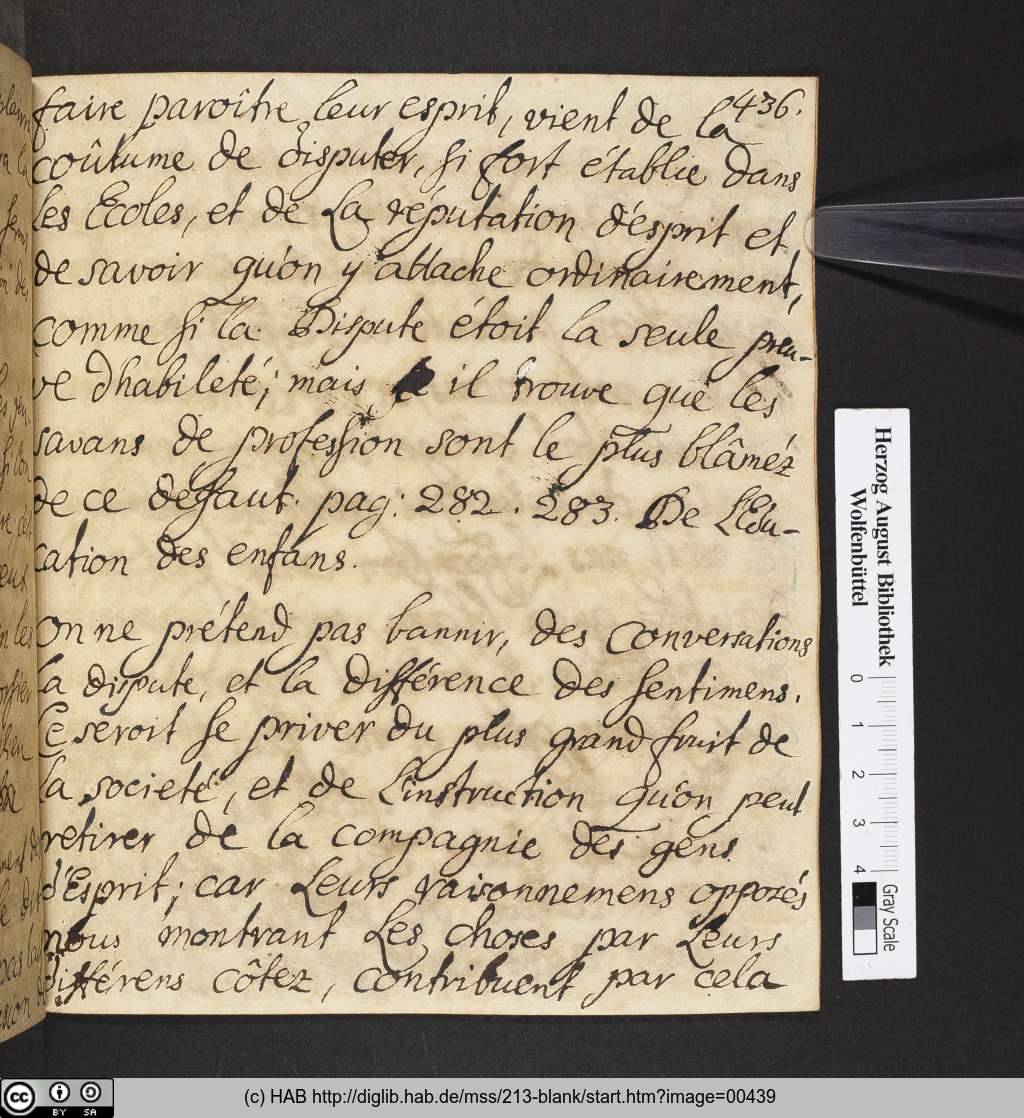 436.
faire paroître leur esprit, vient de la
coûtume de disputer, si fort établie dans
les Ecoles, et de la réputation d'esprit et,
de savoir qu'on y attache ordinairement,
comme si la Dispute étoit la seule preu-
ve dhabileté; mais il trouve que les
savans de profession sont le plus blâméz
de ce defaut. pag: 282. 283. De L'Edu-
cation des enfans.
On ne prétend pas bannir, des Conversations
la dispute, et la différence des sentimens.
Ce seroit se priver du plus grand fruit de
la societé, et de L'instruction qu'on peut
retirer de la compagnie des gens
d'Esprit; car Leurs raisonnemens opposés
nous montrant Les choses par Leurs
différens côtez, contribuent par cela
Herzog August Bibliothek
Wolfenbüttel
0 1 2 3 4
Gray Scale
cc BY SA
(c) HAB http://diglib.hab.de/mss/213-blank/start.htm?image=00439